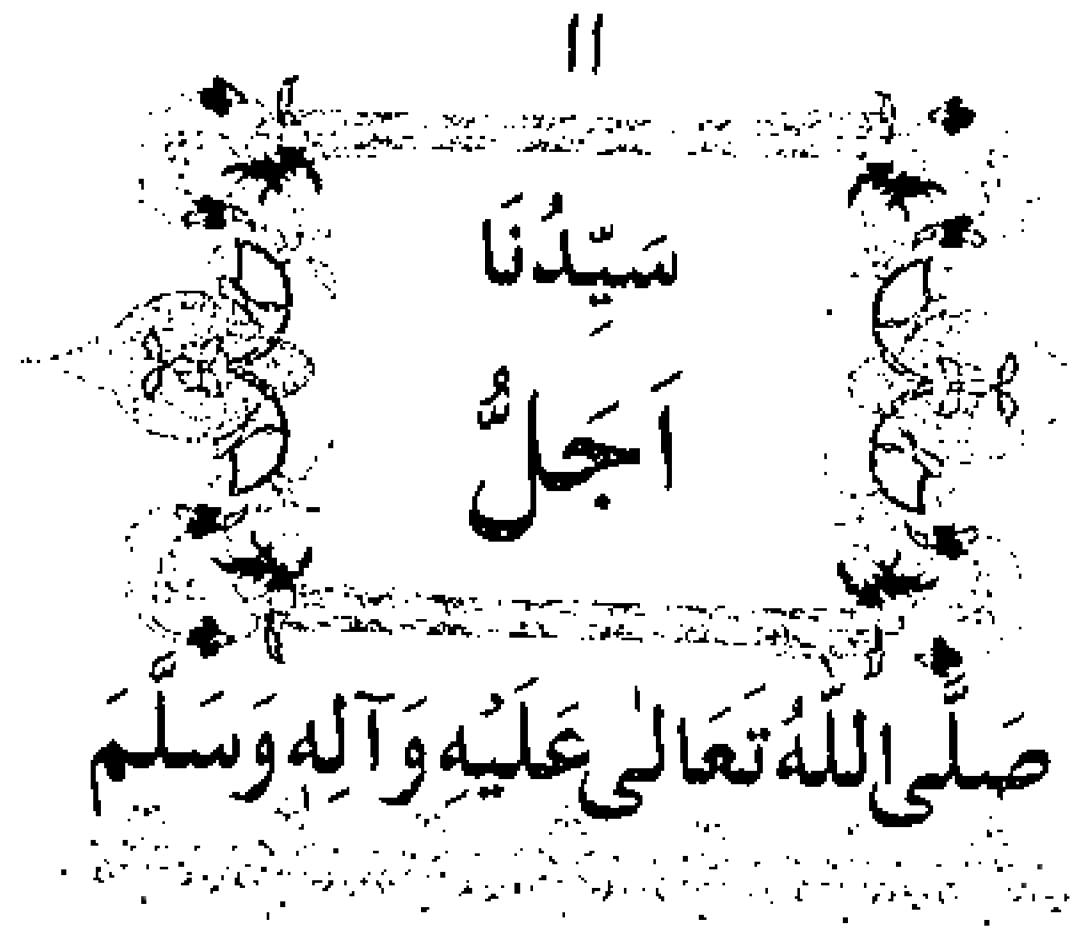 ١١
سَيِّدُنَا
اَجَلُّ
صَلَّى اللّٰهُ تَعَالٰى عَلَيْهِ وَآلِهِ وَسَلَّمَ